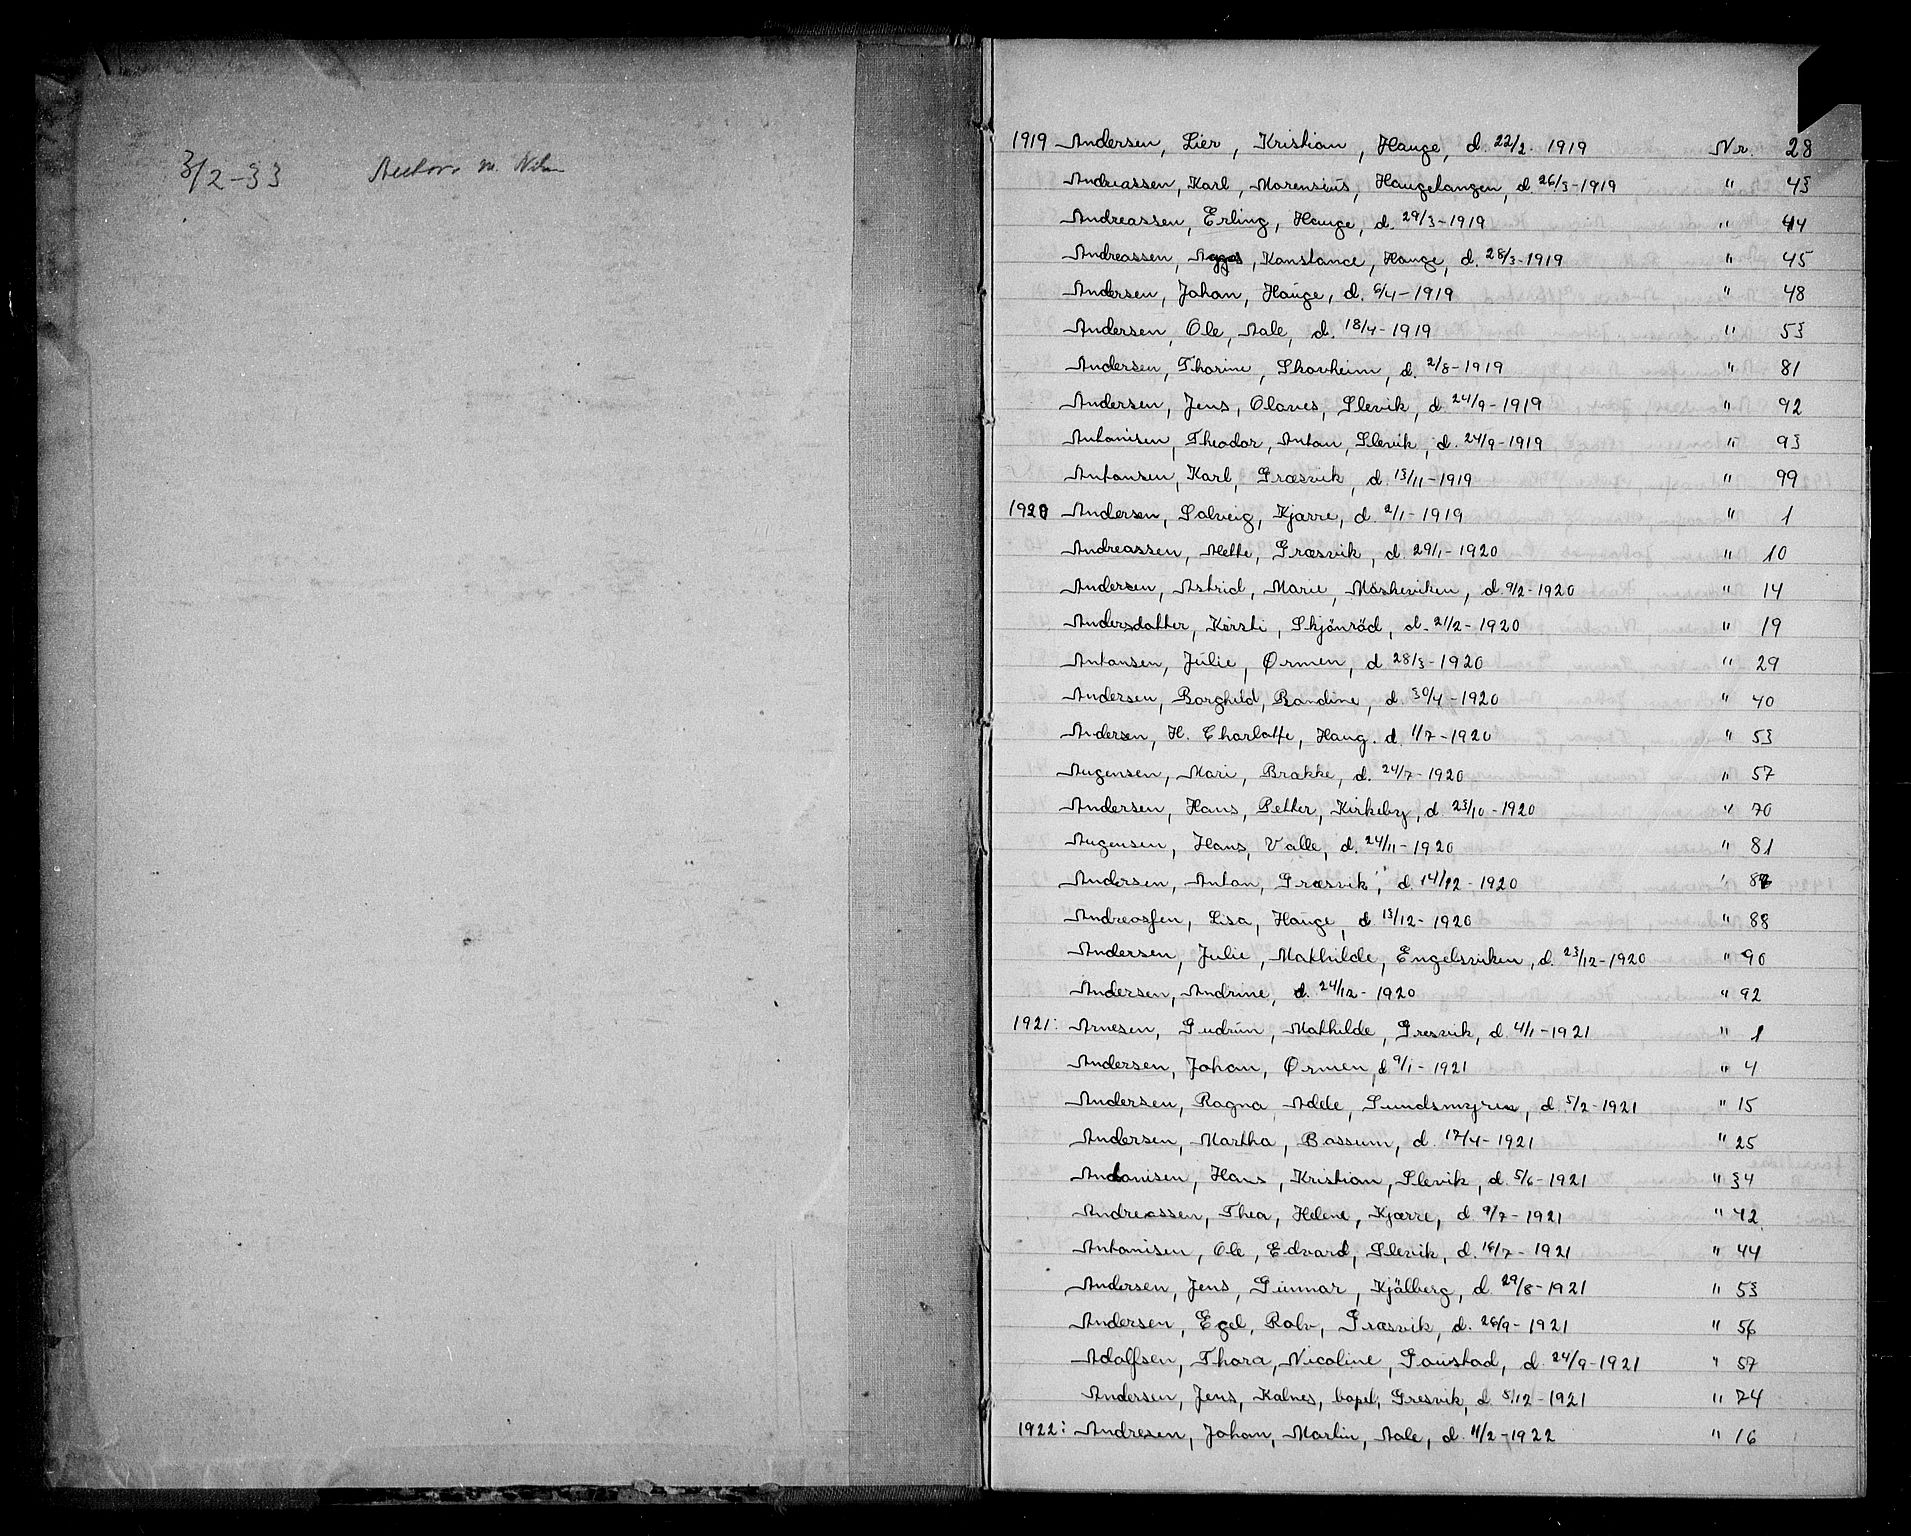 3/2-33
1919 Andersen, Lier, Kristian, Hauge, d. 22/2. 1919 Nr. 28
Andreassen, Karl, Marensius, Haugetangen, d. 26/3-1919 " 43
Andreassen, Erling, Hauge, d. 29/3-1919 " 44
Andreassen, Konstance, Hauge, d. 28/3-1919 " 45
Andersen, Johan, Hauge, d. 6/4-1919 " 48
Andersen, Ole, Aale, d. 18/4-1919 " 53
Andersen, Thorine, Skovheim, d. 2/8-1919 " 81
Andersen, Jens, Olaves, Slevik, d. 24/9-1919 " 92
Antonisen, Theodor, Anton, Slevik, d. 24/9-1919 " 93
Antonsen, Karl, Græsvik, d. 13/11-1919 " 99
1920 Andersen, Solveig, Kjærre, d. 2/1-1919 " 1
Andreassen, Mette, Græsvik, d. 29/1-1920 " 10
Andersen, Astrid, Marie, Mösheviken, d. 9/2-1920 " 14
Andersdatter, Kirsti, Skjönröd, d. 21/2-1920 " 19
Antonsen, Julie, Ørmen, d 28/3-1920 " 29
Andersen, Borghild, Randine, d. 30/4-1920 " 40
Andersen, H. Charlotte, Haug. d. 1/7-1920 " 53
Augensen, Mari, Brakke, d. 24/7-1920 " 57
Andersen, Hans, Petter, Kirkeby, d. 23/10-1920 " 70
Augensen, Hans, Valle, d. 24/11-1920 " 81
Andersen, Anton, Græsvik, d 14/12-1920 "
Andreassen, Lisa, Hauge, d 13/12-1920 " 88
Andersen, Julie, Mathilde, Engelsviken, d. 23/12-1920 " 90
Andersen, Andrine, d. 24/12-1920 " 92
1921: Arnesen, Gudrun, Mathilde, Gresvik, d. 4/1-1921 " 1
Andersen, Johan, Ørmen, d 9/1-1921 " 4
Andersen, Ragna Adele, Sundsmyren, d. 5/2-1921 " 15
Andersen, Martha, Bossum, d. 17/4-1921 " 25
Antonisen, Hans, Kristian, Slevik, d. 5/6-1921 " 34
Andreassen, Thea, Helene, Kjærre, d. 9/7-1921 " 42
Antonisen, Ole, Edvard, Slevik, d. 16/7-1921 " 44
Andersen, Jens, Gunnar, Kjölberg, d. 29/8-1921 " 53
Andersen, Egel, Rolv, Græsvik, d. 26/9-1921 " 56
Adolfsen, Thora, Nicoline, Gaustad, d. 24/9-1921 " 57
Andersen, Jens, Kalnes, bopel, Gresvik, d. 5/12-1921 " 74
1922: Andresen, Johan, Martin, Aale, d. 11/2-1922 " 16